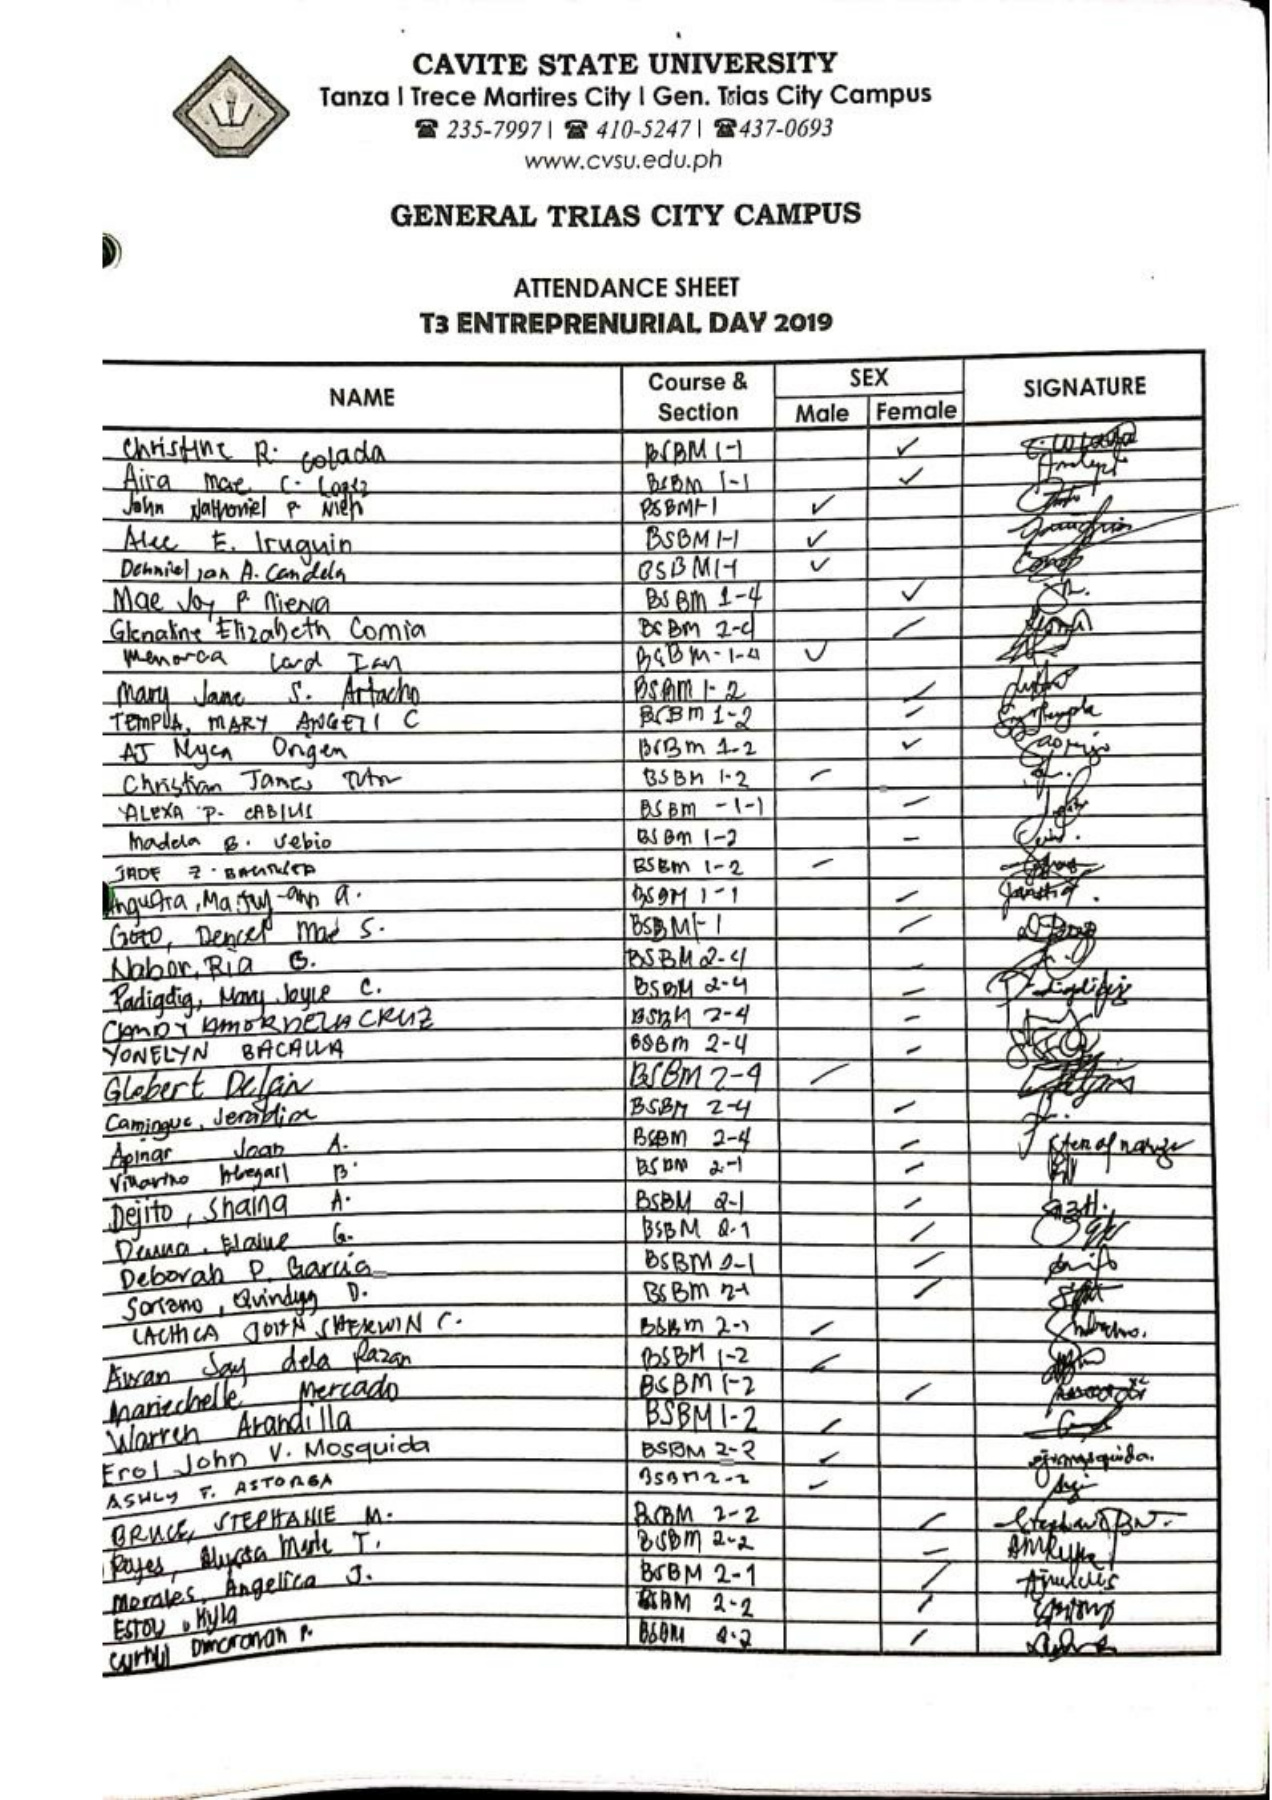 CAVITE STATE UNIVERSITY
Tanza | Trece Martires City | Gen. Trias City Campus
☎ 235-7997| ☎ 410-5247| ☎437-0693
www.cvsu.edu.ph
GENERAL TRIAS CITY CAMPUS
ATTENDANCE SHEET
T3 ENTREPRENURIAL DAY 2019
NAME Course & Section SEX Male Female SIGNATURE
Christine R. Colada BSBM 1-1 ✓
Aira Mae C. Lopez BSBM 1-1 ✓
John Nathaniel P. BSBM1-1 ✓
Alec E. Iruguin BSBM1-1 ✓
Jan A. Candela BSBM1-1 ✓
Mae Joy P. Niena BSBM 1-4 ✓
Glenaline Elizabeth Comia BSBM 2-4
Menorca Lard Ian BSBM-1-4 ✓
Mary Jane S. Artacho BSBM 1-2
TEMPLA, MARY ANGELI C BSBM 1-2
AJ Nyca Origen BSBM 1-2 ✓
Christian James BSBM 1-2
ALEXA P. CABIUS BSBM -1-1
Madela B. Sebio BSBM 1-2
JADE Z. BSBM 1-2
Ma. ann A. BSBM 1-1
Goto, Dencel Mae S. BSBM1-1
Nabor, Ria G. BSBM 2-4
Padigdig, Mary Joyce C. BSBM 2-4
CANDY AMOR DELA CRUZ BSBM 2-4
YONELYN BACALLA BSBM 2-4
Glebert Delfin BSBM 2-4
Camingue, Jeraldine BSBM 2-4
Apinar Joan A. BSBM 2-4
Villarino Abegail B. BSBM 2-1
Dejito, Shaina A. BSBM 2-1
Elaine G. BSBM 2-1
Deborah P. Garcia BSBM 2-1
Soriano, D. BSBM 2-1
LACHICA JOHN SHERWIN C. BSBM 2-1
Jay dela Razan BSBM 1-2
Mariechelle Mercado BSBM 1-2
Warren Arandilla BSBM 1-2
Erol John V. Mosquida BSBM 2-2 ejvmosquida.
ASHLY F. ASTORGA BSBM 2-2
BRUCE, STEPHANIE M. BSBM 2-2
Reyes, Alyssa Marie T. BSBM 2-2
Morales, Angelica J. BSBM 2-1
Kyla BSBM 2-2
P. BSBM 2-2